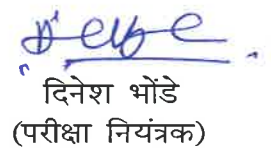 दिनेश भोंडे
(परीक्षा नियंत्रक)